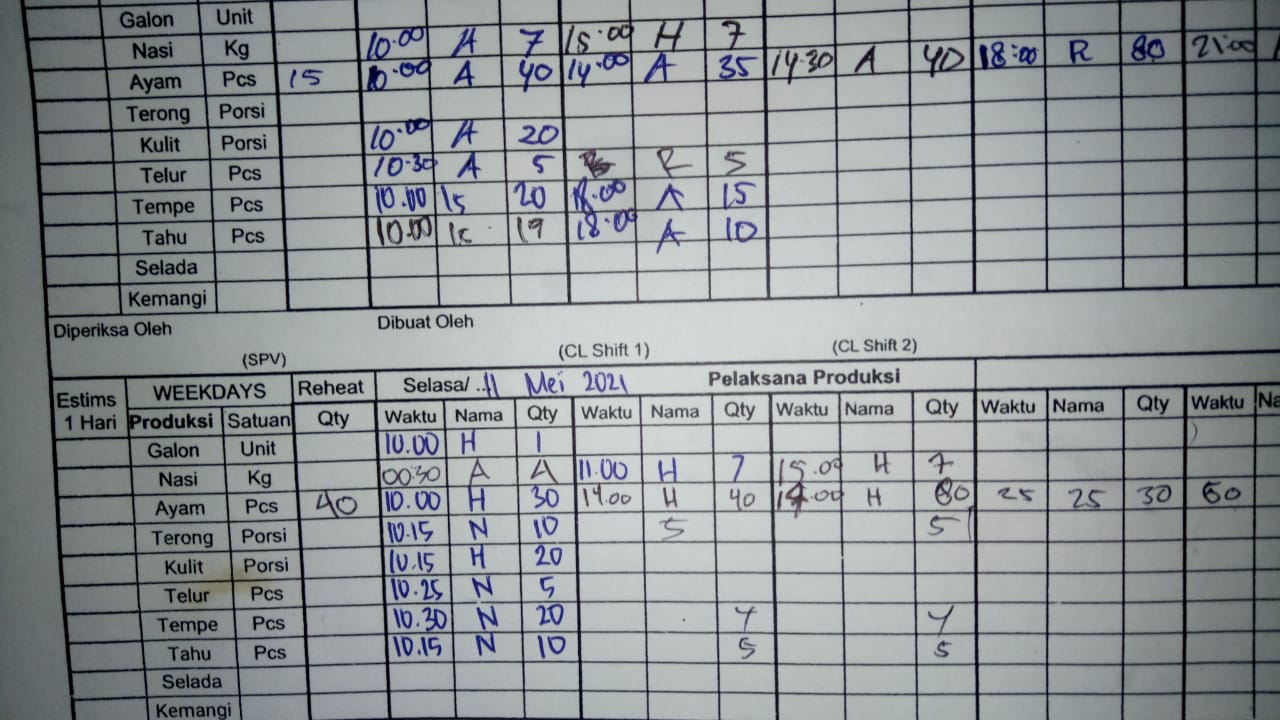 Galon Unit
Nasi Kg 10.00 A 7 15.00 H 7
Ayam Pcs 15 10.00 A 40 14.00 A 35 14.30 A 40 18:00 R 80 21:00
Terong Porsi
Kulit Porsi 10.00 A 20
Telur Pcs 10.30 A 5 R 5
Tempe Pcs 10.00 20 18.00 A 15
Tahu Pcs 10.00 19 18.00 A 10
Selada
Kemangi
Diperiksa Oleh Dibuat Oleh
(SPV) (CL Shift 1) (CL Shift 2)
Estims 1 Hari WEEKDAYS Reheat Selasa/ ..11 Mei 2021 Pelaksana Produksi
Produksi Satuan Qty Waktu Nama Qty Waktu Nama Qty Waktu Nama Qty Waktu Nama Qty Waktu Na
Galon Unit 10.00 H 1
Nasi Kg 00:30 A A 11.00 H 7 15.00 H 7
Ayam Pcs 40 10.00 H 30 14.00 H 40 H 80 25 25 30 60
Terong Porsi 10.15 N 10 5 5
Kulit Porsi 10.15 H 20
Telur Pcs 10.25 N 5
Tempe Pcs 10.30 N 20 4 4
Tahu Pcs 10.15 N 10 5 5
Selada
Kemangi